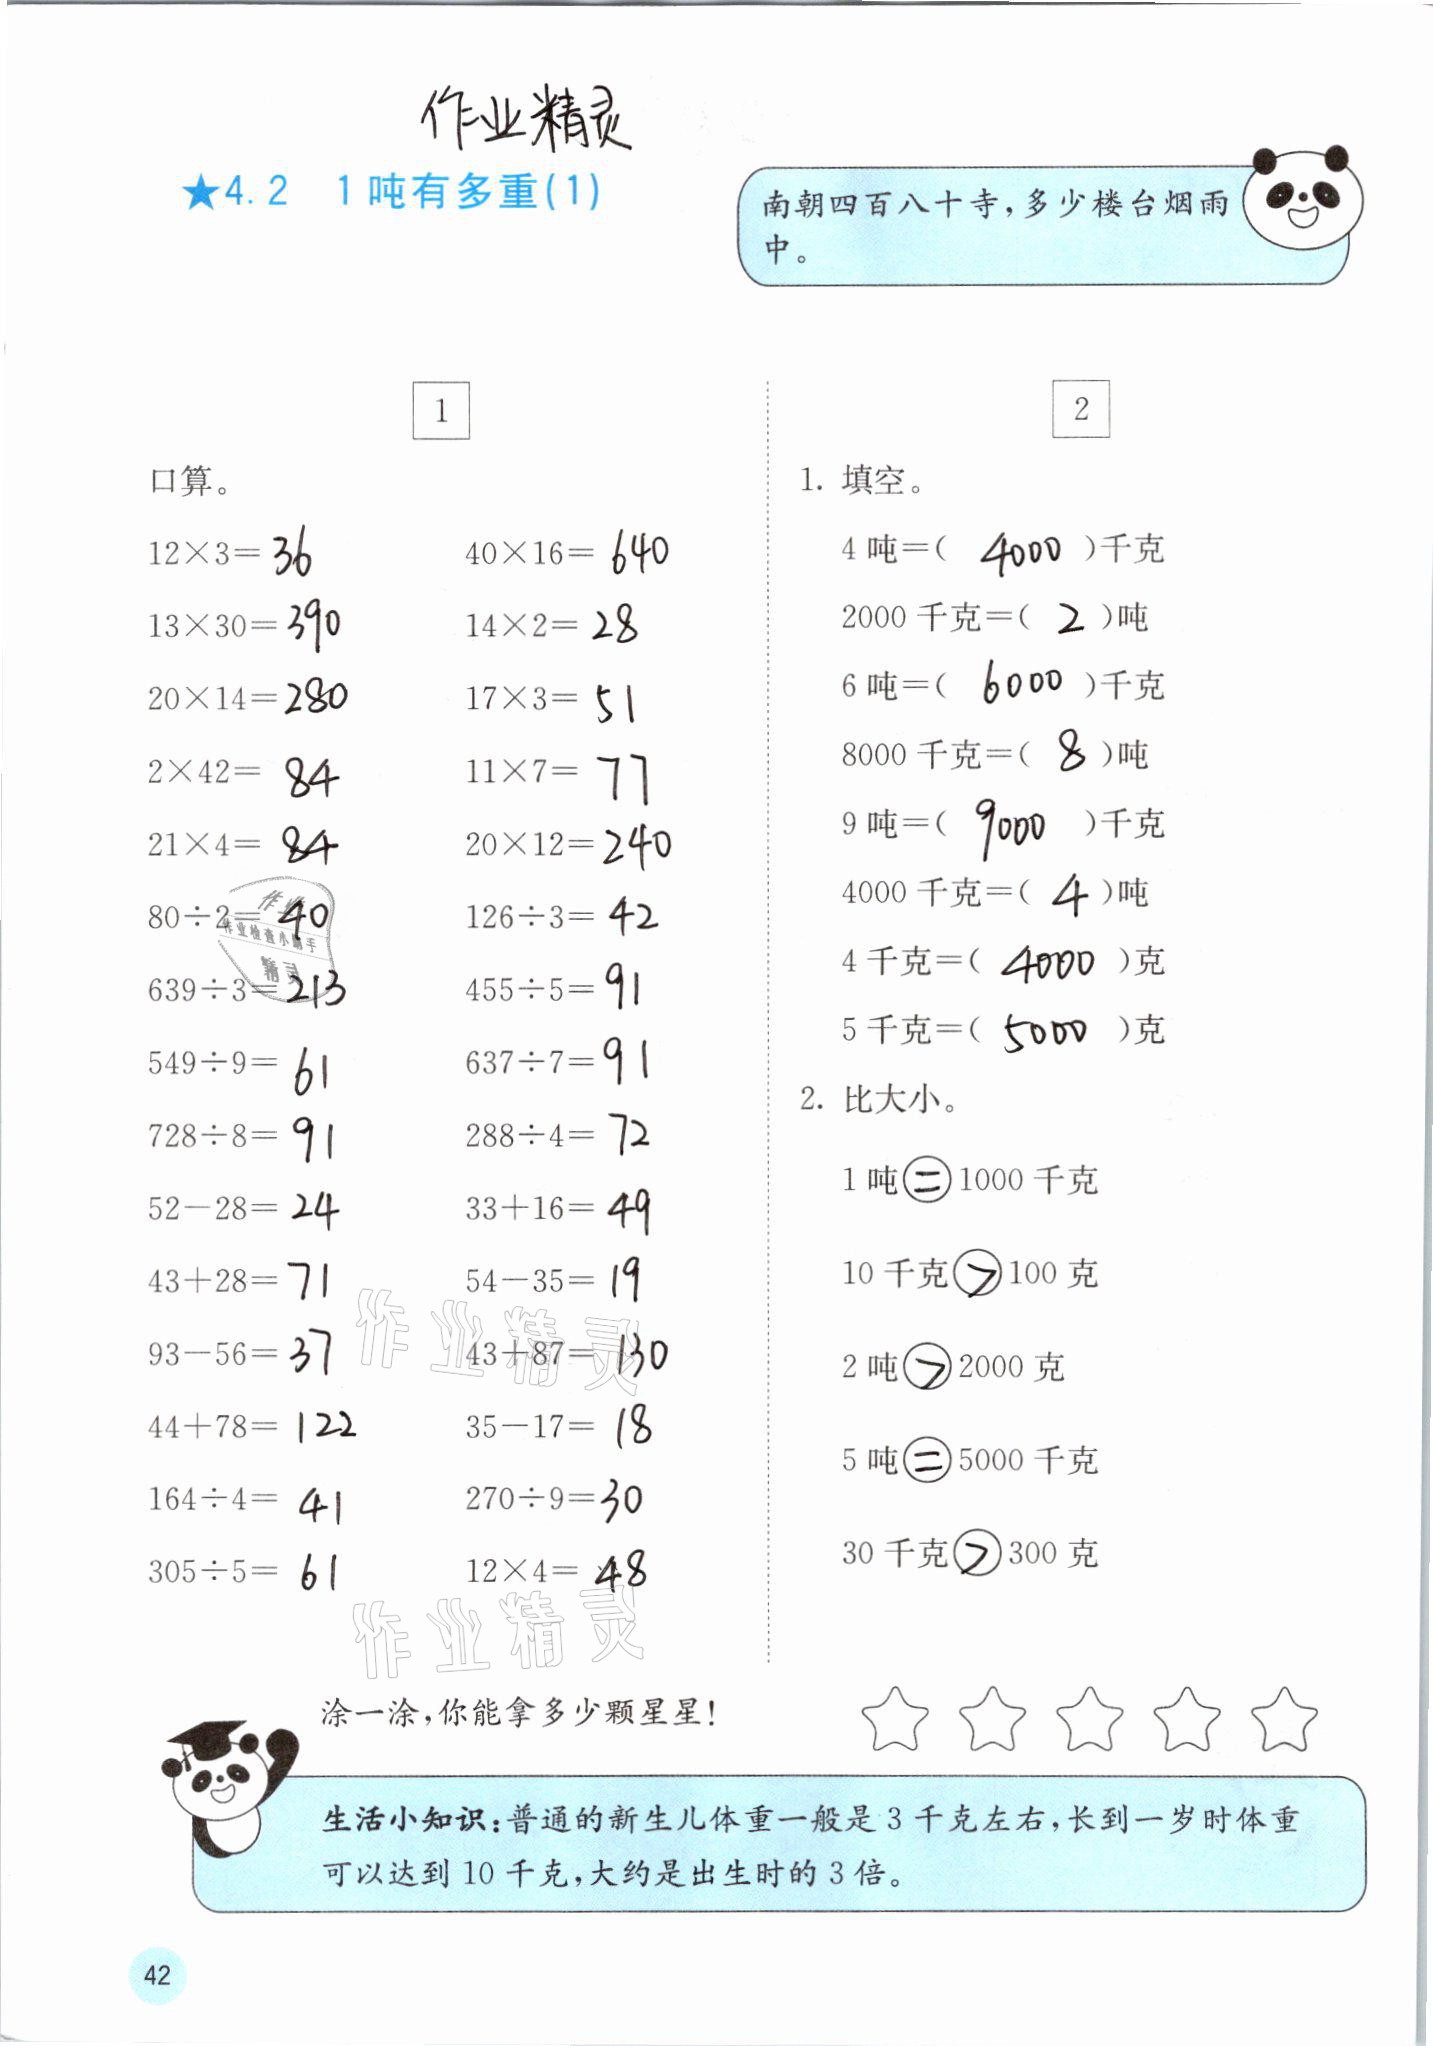 作业精灵
★4.2 1吨有多重(1)
南朝四百八十寺,多少楼台烟雨
中。
1
口算。
12×3=36 40×16=640
13×30=390 14×2=28
20×14=280 17×3=51
2×42=84 11×7=77
21×4=84 20×12=240
80÷2=40 126÷3=42
639÷3=213 455÷5=91
549÷9=61 637÷7=91
728÷8=91 288÷4=72
52-28=24 33+16=49
43+28=71 54-35=19
93-56=37 43+87=130
44+78=122 35-17=18
164÷4=41 270÷9=30
305÷5=61 12×4=48
作业
作业检查小助手
精灵
作业精灵
作业精灵
2
1. 填空。
4吨=(4000)千克
2000千克=(2)吨
6吨=(6000)千克
8000千克=(8)吨
9吨=(9000)千克
4000千克=(4)吨
4千克=(4000)克
5千克=(5000)克
2. 比大小。
1吨=1000千克
10千克>100克
2吨>2000克
5吨=5000千克
30千克>300克
涂一涂,你能拿多少颗星星!
生活小知识:普通的新生儿体重一般是3千克左右,长到一岁时体重
可以达到10千克,大约是出生时的3倍。
42